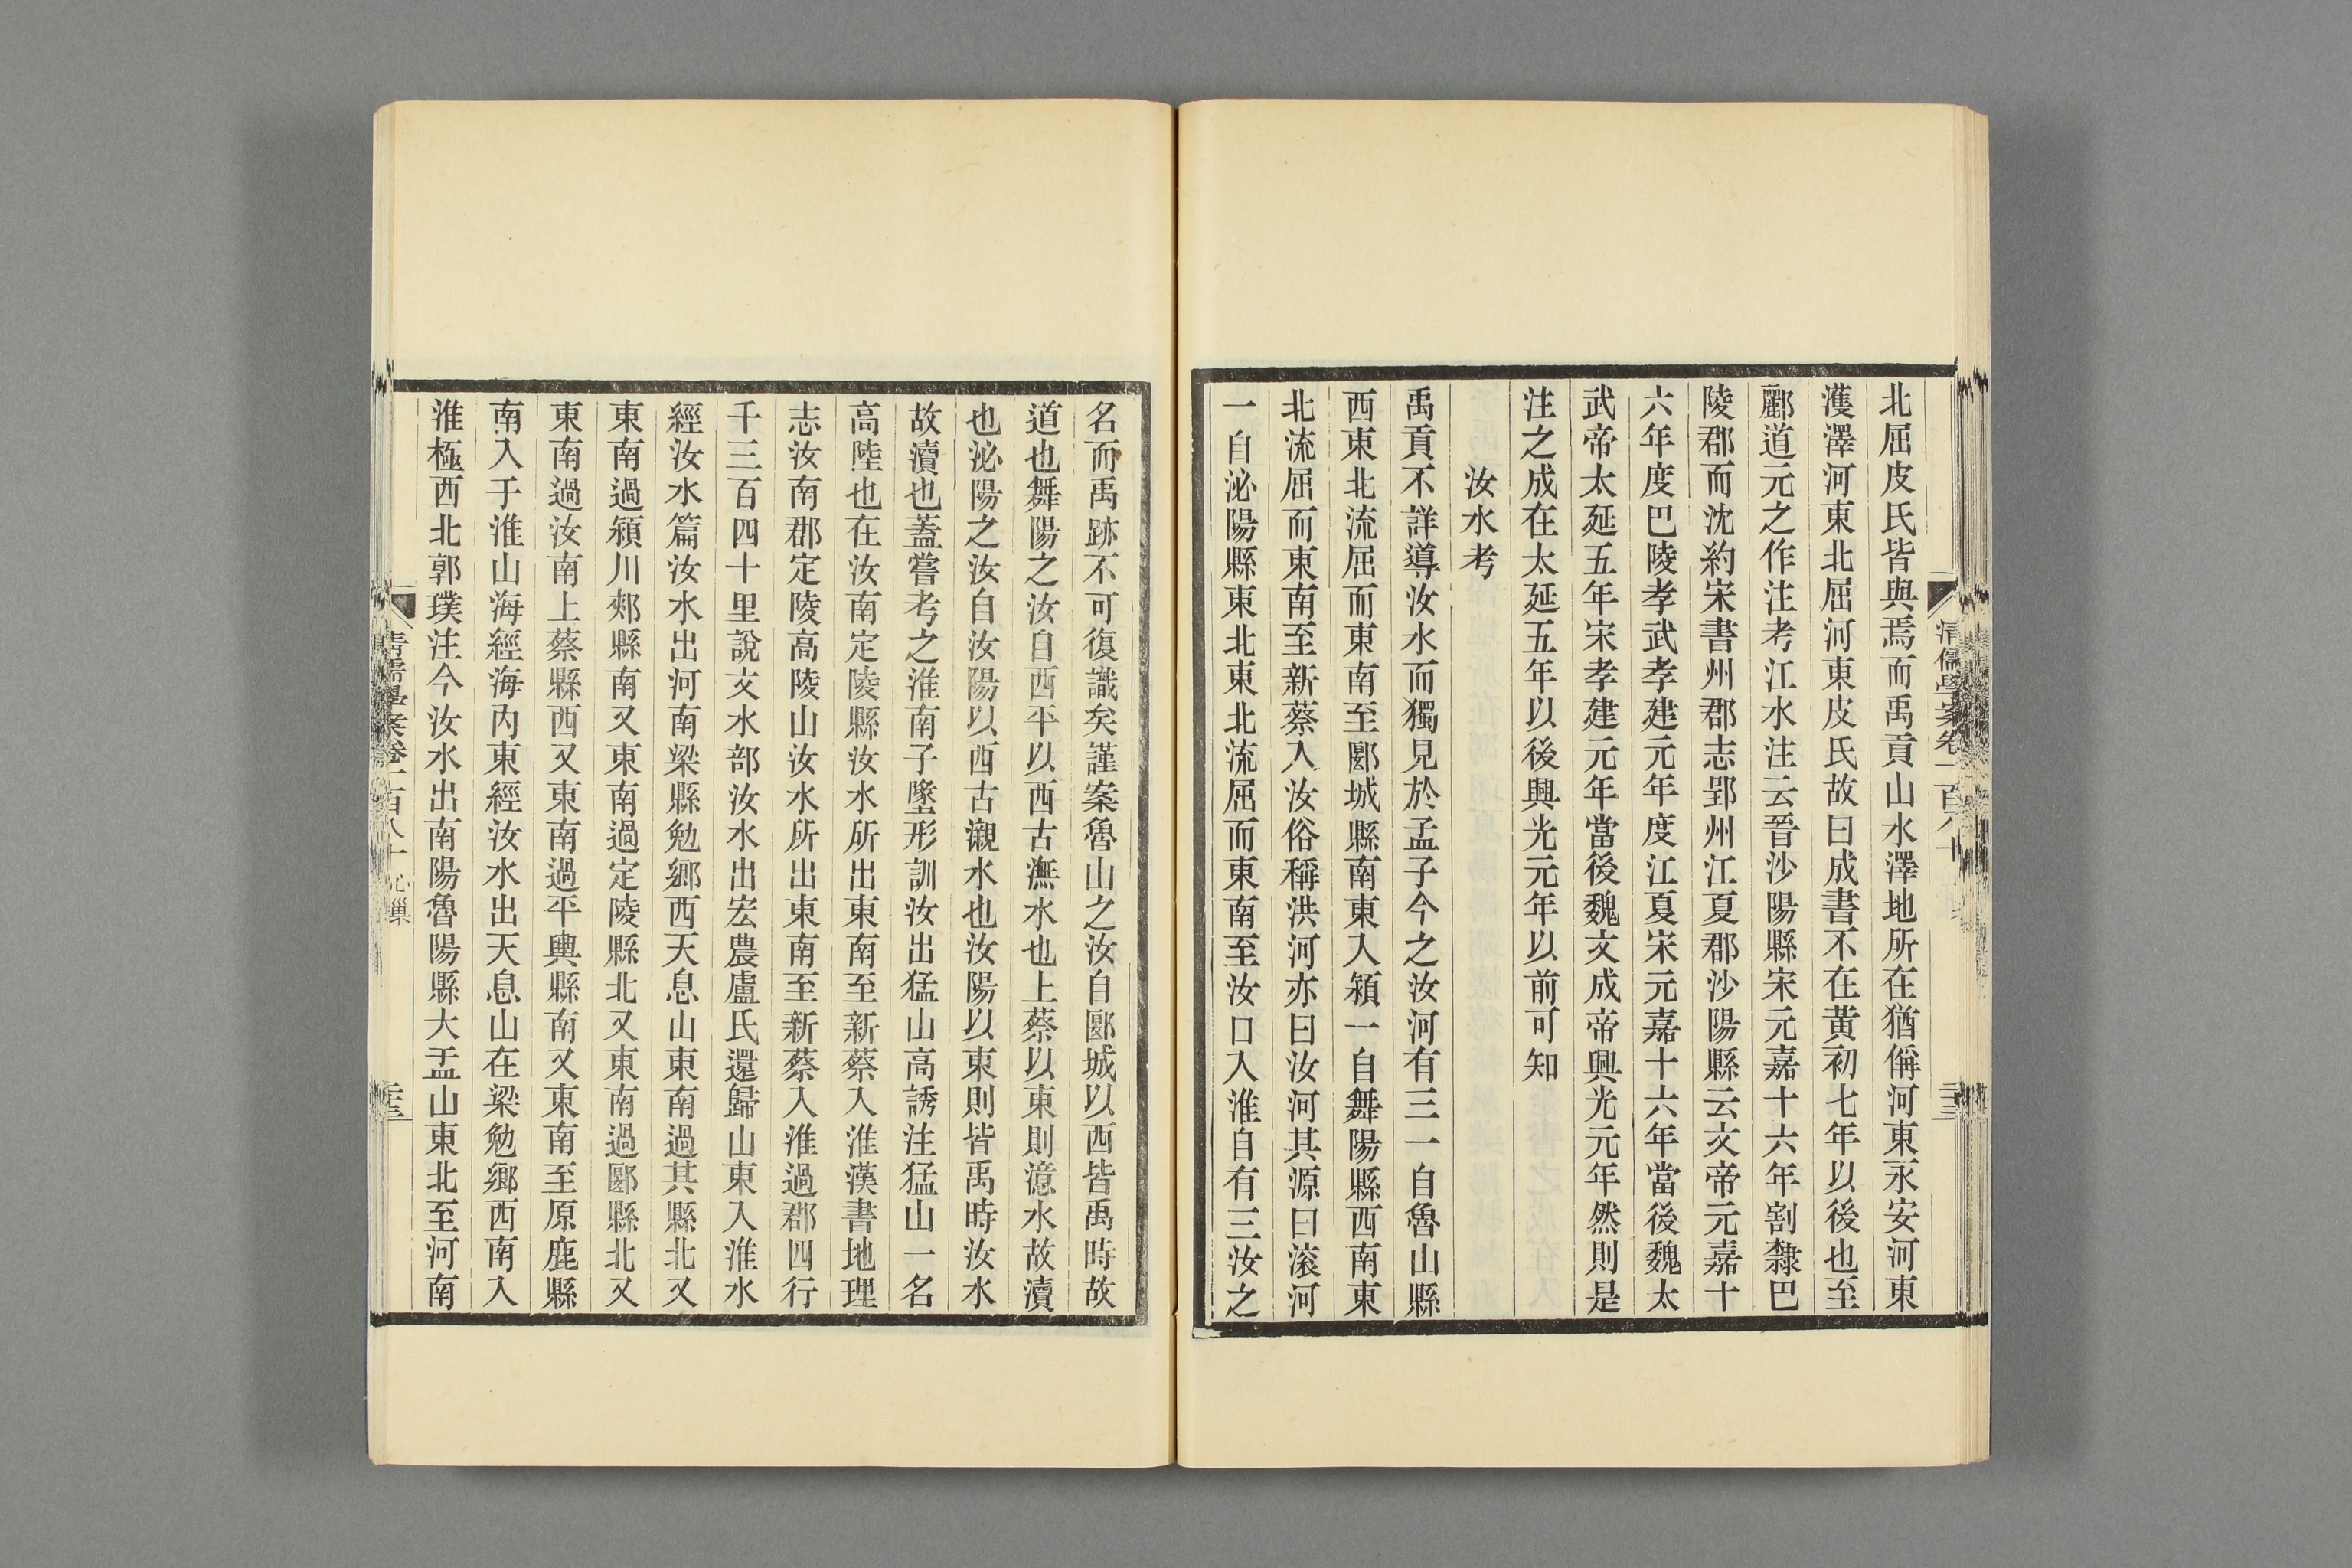 北屈皮氏皆與焉而禹貢山水澤地所在猶偁河東永安河東
濩澤河東北屈河東皮氏故曰成書不在黃初七年以後也至
酈道元之作注考江水注云晉沙陽縣宋元嘉十六年割隸巴
陵郡而沈約宋書州郡志郢州江夏郡沙陽縣云文帝元嘉十
六年度巴陵孝武孝建元年度江夏宋元嘉十六年當後魏太
武帝太延五年宋孝建元年當後魏文成帝興光元年然則是
注之成在太延五年以後興光元年以前可知
汝水考
禹貢不詳導汝水而獨見於孟子今之汝河有三一自魯山縣
西東北流屈而東南至郾城縣南東入潁一自舞陽縣西南東
北流屈而東南至新蔡入汝俗稱洪河亦曰汝河其源曰滾河
一自泌陽縣東北東北流屈而東南至汝口入淮自有三汝之
清儒學案卷一百八十
名而禹跡不可復識矣謹案魯山之汝自郾城以西皆禹時故
道也舞陽之汝自西平以西古潕水也上蔡以東則澺水故瀆
也泌陽之汝自汝陽以西古瀙水也汝陽以東則皆禹時汝水
故瀆也蓋嘗考之淮南子墬形訓汝出猛山高誘注猛山一名
高陸也在汝南定陵縣汝水所出東南至新蔡入淮漢書地理
志汝南郡定陵高陵山汝水所出東南至新蔡入淮過郡四行
千三百四十里說文水部汝水出宏農盧氏還歸山東入淮水
經汝水篇汝水出河南梁縣勉鄉西天息山東南過其縣北又
東南過潁川郟縣南又東南過定陵縣北又東南過郾縣北又
東南過汝南上蔡縣西又東南過平輿縣南又東南至原鹿縣
南入于淮山海經海內東經汝水出天息山在梁勉鄉西南入
淮極西北郭璞注今汝水出南陽魯陽縣大盂山東北至河南
清儒學案卷一百八十 心巢